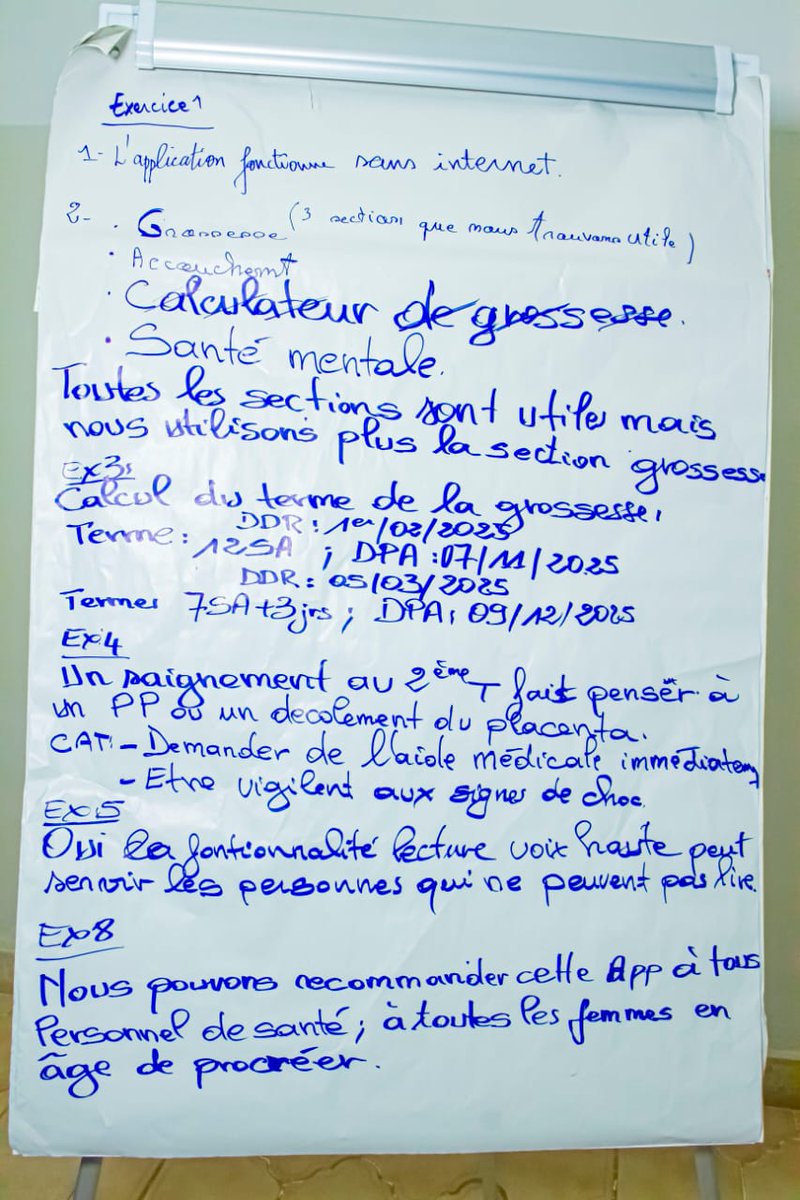 Exercice 1
1- L'application fonctionne sans internet.
2- · Grossesse (3 section que nous trouvons utile)
· Accouchemt
· Calculateur de grossesse.
· Santé mentale.
Toutes les sections sont utiles mais
nous utilisons plus la section grossesse
Ex3:
Calcul du terme de la grossesse:
DDR : 1er/02/2025
Terme : 12SA ; DPA : 07/11/2025
DDR : 05/03/2025
Terme: 7SA+3jrs ; DPA: 09/12/2025
Ex4
Un saignement au 2ème T fait penser à
un PP ou un decolement du placenta.
CAT: - Demander de l'aide médicale immédiatem
- Etre vigilent aux signes de choc.
Ex:5
Oui la fontionnalité lecture voix haute peut
servir les personnes qui ne peuvent pas lire.
Ex8
Nous pouvons recommander cette App à tous
Personnel de santé ; à toutes les femmes en
âge de procréer.